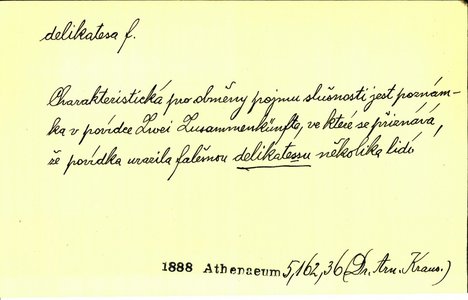 delikatesa f.
Charakteristická pro obměny pojmu slušnosti jest poznám-
ka v povídce Zwei Zusammenkünfte, ve které se přiznává,
že povídka urazila falešnou delikatessu několika lidí
1888 Athenaeum 5,162,36 (Dr. Arn. Kraus.)